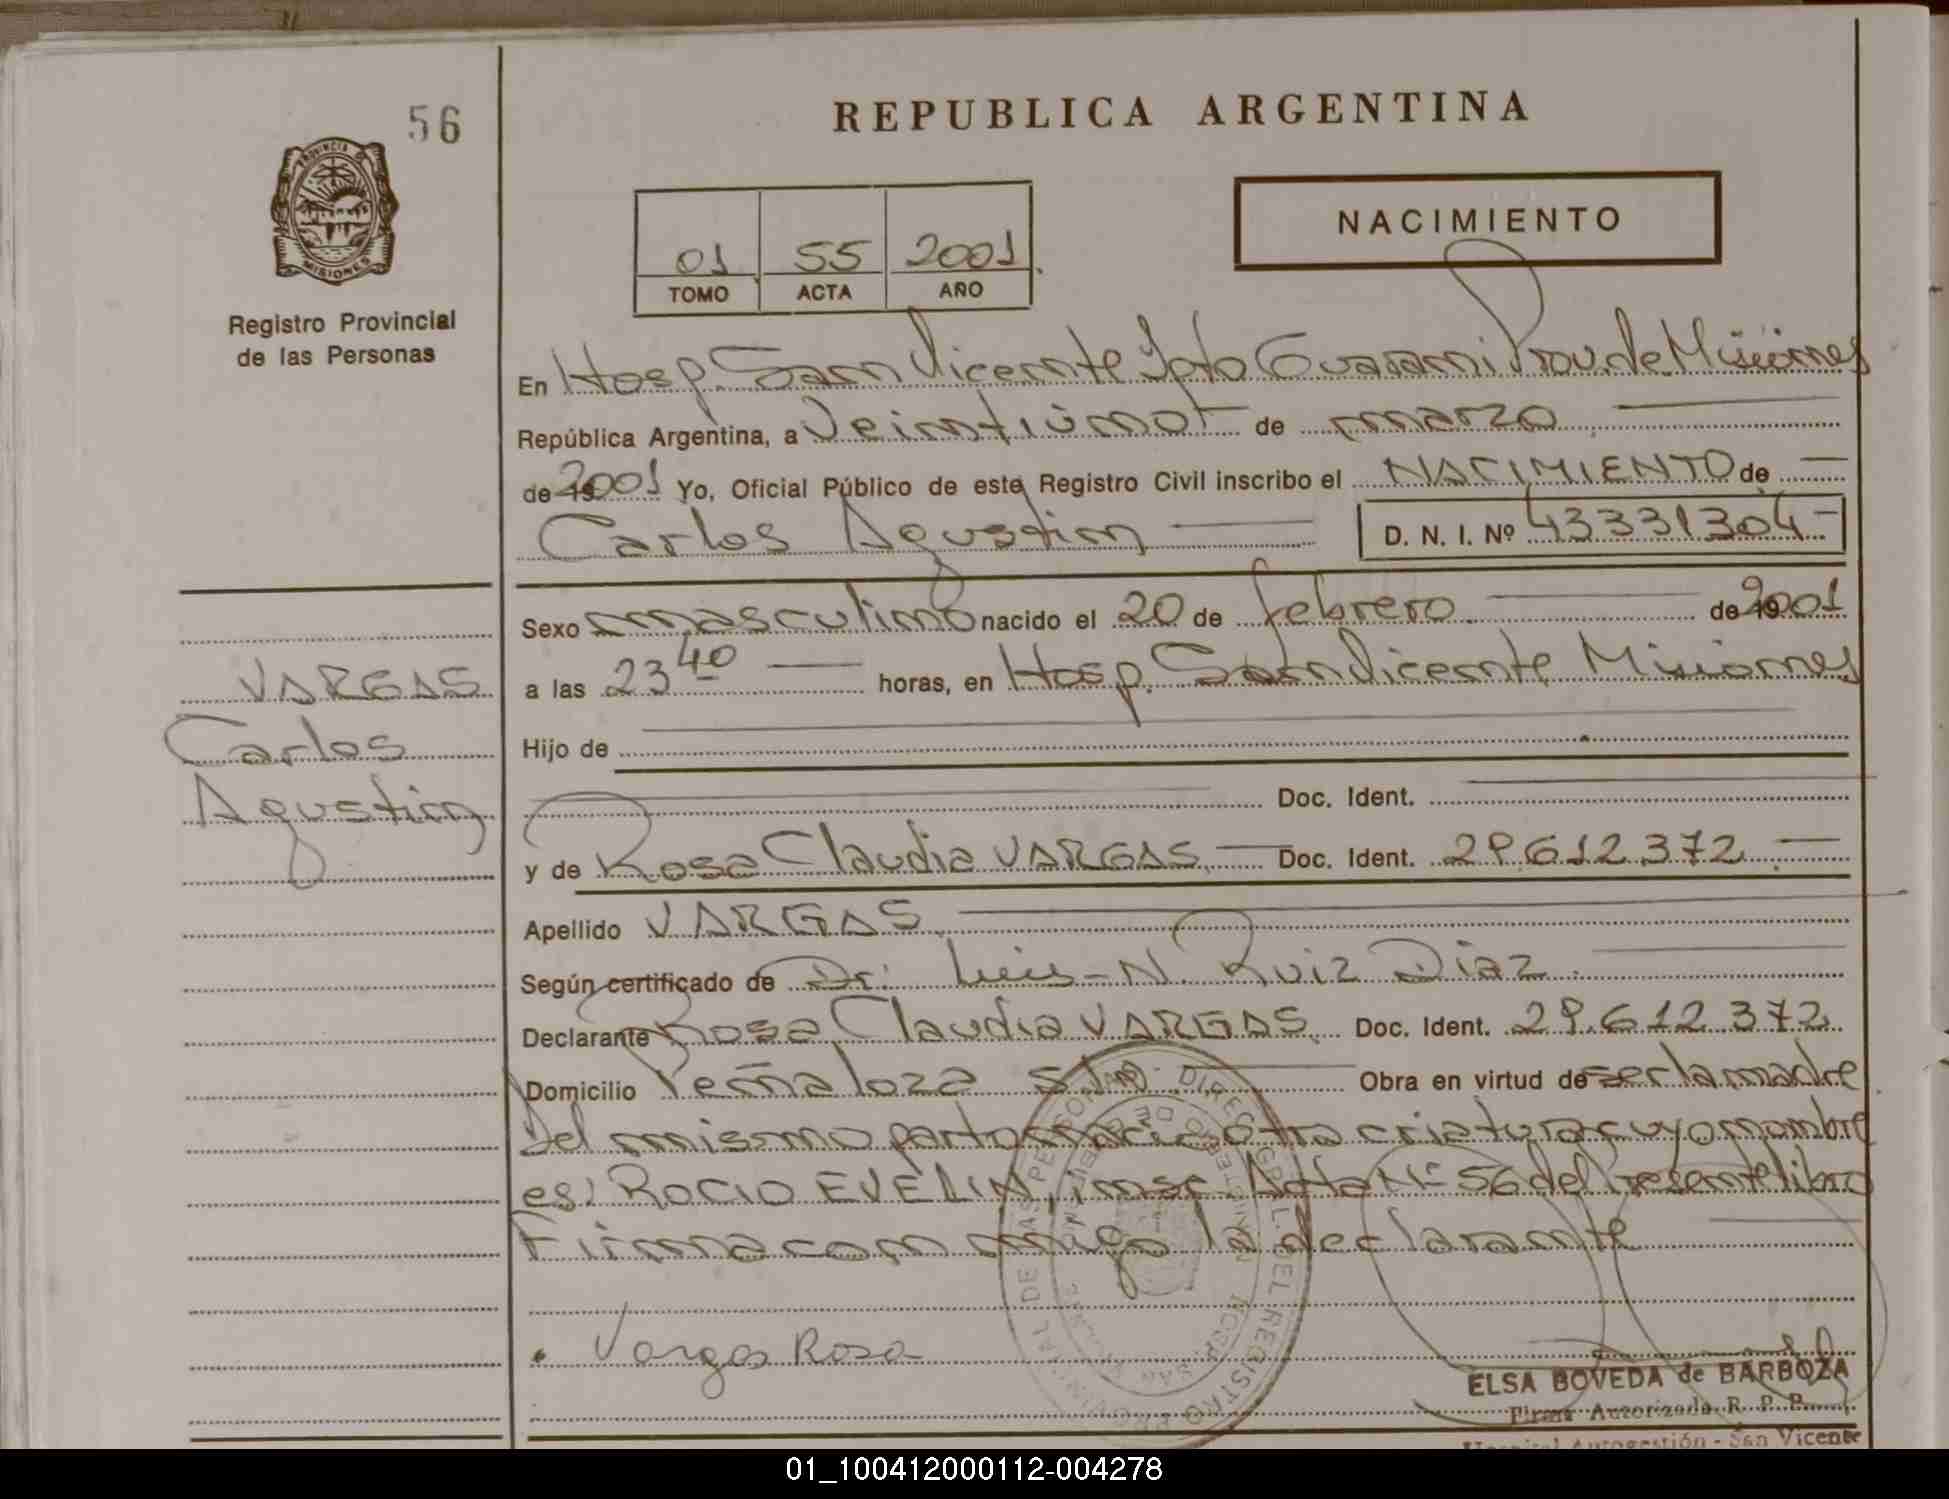 56
REPUBLICA ARGENTINA
PROVINCIA DE
MISIONES
Registro Provincial
de las Personas
NACIMIENTO
01 55 2001
TOMO ACTA AÑO
En Hosp. San Vicente Dpto Guarani Prov. de Misiones
República Argentina, a Veintiuno de marzo
de 19 2001 Yo, Oficial Público de este Registro Civil inscribo el NACIMIENTO de
Carlos Agustin D. N. I. Nº 43331304
Sexo masculino nacido el 20 de febrero de 19 2001
a las 23 40 horas, en Hosp. San Vicente Misiones
Hijo de
Doc. Ident.
y de Rosa Claudia VARGAS Doc. Ident. 29.612.372
Apellido VARGAS
Según certificado de Dr. Luis N. Ruiz Diaz
Declarante Rosa Claudia VARGAS Doc. Ident. 29.612.372
Domicilio Peñaloza s/n Obra en virtud de ser la madre
Del mismo parto nació otra criatura cuyo nombre
es: ROCIO EVELIN, insc. Acta Nº 56 del Presente libro
Firma con migo la declarante
Vargas Rosa
VARGAS
Carlos
Agustin
ELSA BOVEDA de BARBOZA
Firma Autorizada R. P. P.
Hospital Autogestión - San Vicente
01_100412000112-004278